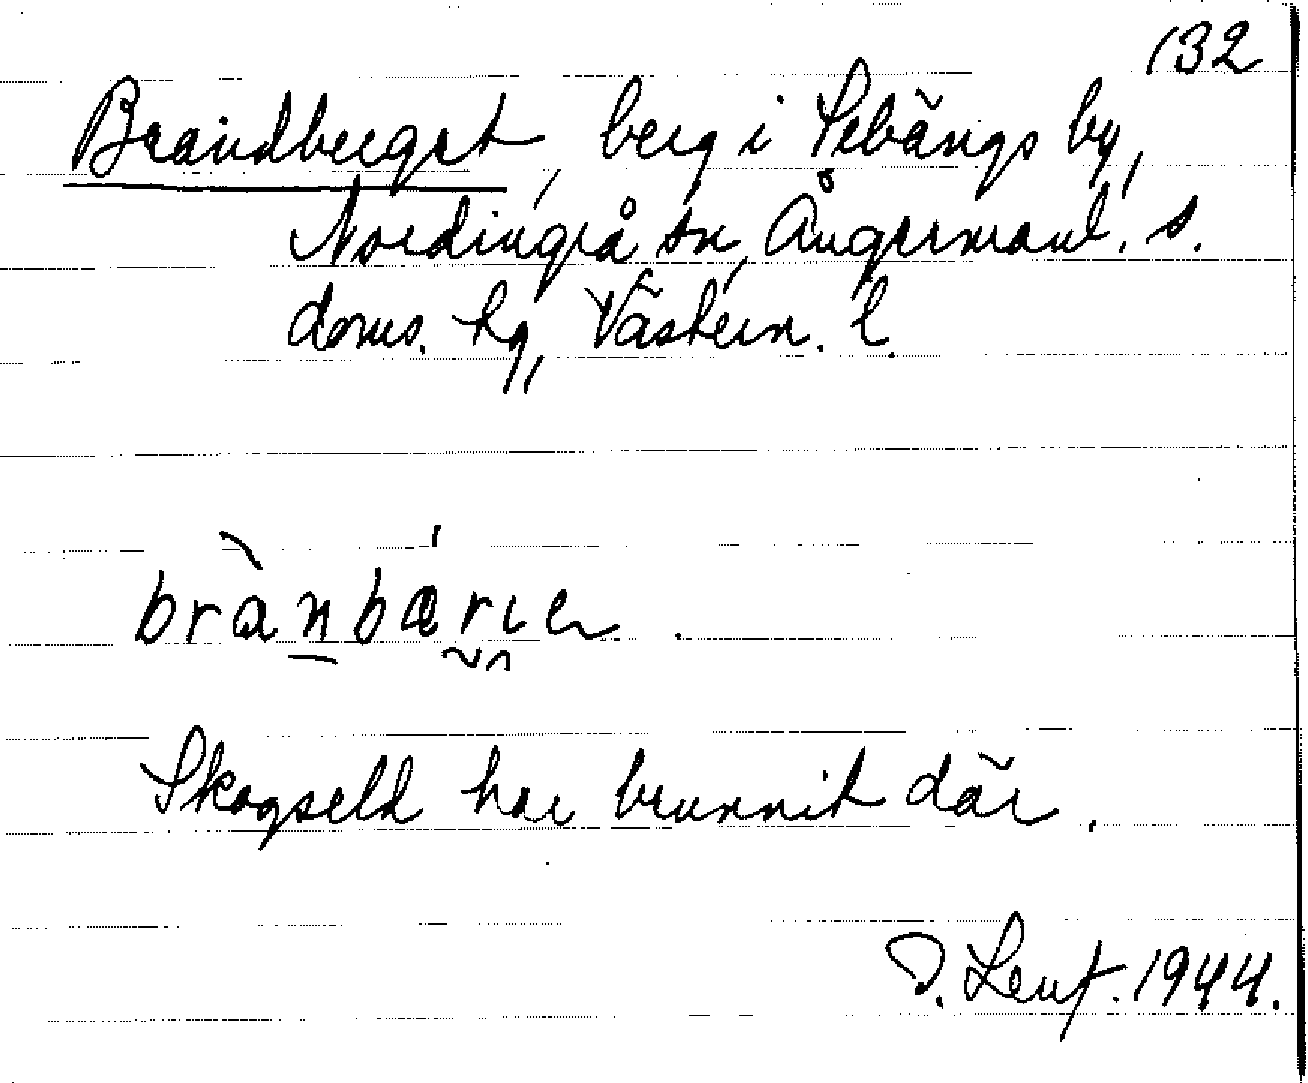 132
Brandberget, berg i Sebångs by,
Nordingrå sn, Ångermanl. s.
doms. hg, Västern. l.
brànbárıe.
Skogseld har brunnit där.